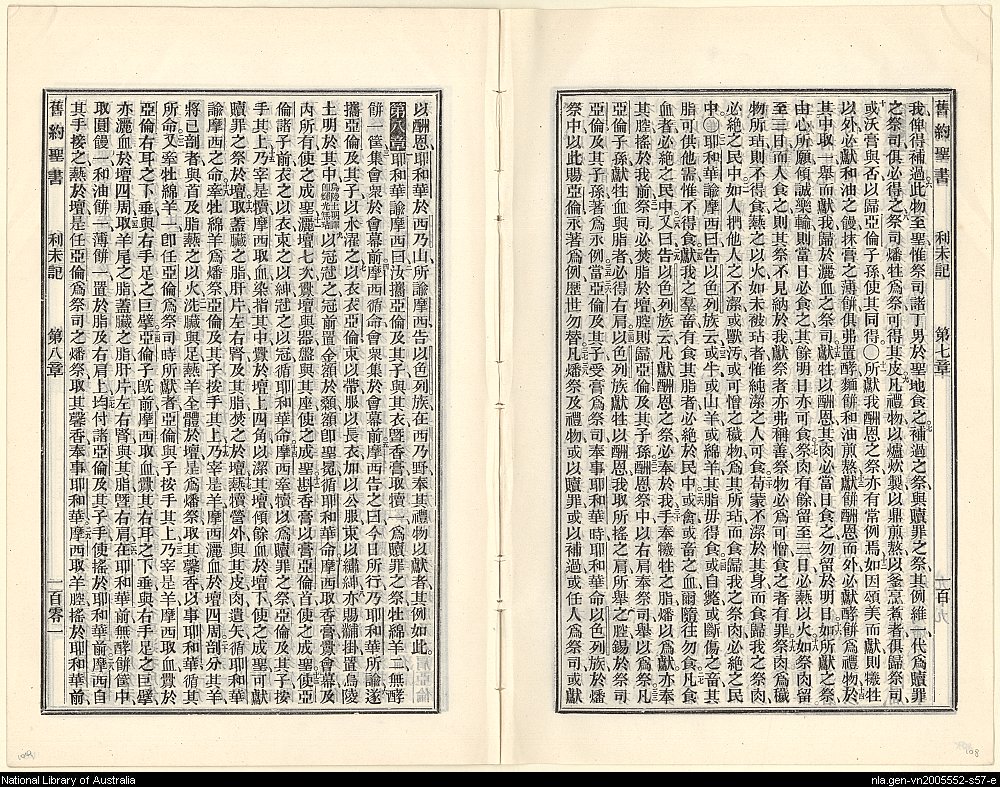 舊約聖書 利未記 第七章 一百
我俾得補過此物至聖惟祭司諸丁男於聖地食之補過之祭與贖罪之祭其例維一代爲贖罪
之祭司俱必得之祭司燔牲爲祭可得其皮凡禮物以爐炊製以鼎煎熬以釜烹煮者俱歸祭司
或沃膏與否以歸亞倫子孫使其同得〇所獻我酬恩之祭亦有常例焉如因頌美而獻則犧牲
以外必獻和油之饅抹膏之薄餅俱弗置酵麵餅和油煎熬獻餅酬恩而外必獻酵餅爲禮物於
其中取一舉而獻我歸於灑血之祭司獻牲以酬恩其肉必當日食之勿留於明日如所獻之祭
由心所願傾誠樂輸則當日必食之其餘明日亦可食祭肉有餘留至三日必爇以火如祭肉留
至三日而人食之則其祭不見納於我獻祭者亦弗稱善祭物必可憎食之者有罪祭肉爲穢
物所玷則不得食爇之以火如未被玷者惟純潔之人可食苟蒙不潔於其身而食歸我之祭肉
必絕之民中如人捫他人之不潔或獸汚或可憎之穢物爲其所玷而食歸我之祭肉必絕之民
中〇耶和華諭摩西曰告以色列族云或牛或山羊或綿羊其脂毋得食或自斃或斷傷之畜其
脂可供他需惟不得食獻我之羣畜有食其脂者必絕於民中或禽或畜之血爾隨往勿食凡食
血者必絕之民中又曰告以色列族云凡獻酬恩之祭必奉於我手奉犧牲之脂爲燔以爲獻亦奉
其膛搖於我前祭司必焚脂於壇膛則歸亞倫及其子孫酬恩祭中以右肩奉祭司舉以爲獻凡
亞倫子孫獻牲血與脂者必得右肩以色列族獻牲以酬恩我取所搖之肩所舉之膛錫於祭司
亞倫及其子孫著爲永例當亞倫及其子受膏爲祭司奉事耶和華時耶和華命以色列族於燔
祭中以此賜亞倫永著爲例歷世勿替凡燔祭及禮物或以贖罪或以補過或任人爲祭司或獻
以酬恩耶和華於西乃山所諭摩西告以色列族在西乃野奉其禮物以獻者其例如此
第八章耶和華諭摩西曰汝攜亞倫及其子與其衣曁香膏取犢一爲贖罪之祭牡綿羊二無酵
餅一筐集會衆於會幕前摩西循命會衆集於會幕前摩西告之曰今日所行乃耶和華所諭遂
攜亞倫及其子以水濯之以衣衣亞倫束以帶服以長衣加以公服束以繡紳亦賜補掛置烏陵
土明於其中以冠冠之冠前置金額於纇額卽聖冕循耶和華命摩西取香膏貲會幕及
內所有使之成聖灑壇七次貲壇與器盤與其座使之成聖斟香膏以膏亞倫首使成聖使亞
倫諸子前衣之以衣束之以紳冠之以冠循耶和華命摩西牽犢以爲贖罪之祭亞倫及其子按
手其上乃宰是犢摩西取血染指其中釁於壇上四角以潔其壇傾餘血於壇下使之成聖可獻
贖罪之祭於壇取蓋臟之脂肝片左右腎及其脂焚之於壇爇犢營外與其皮肉遺矢循耶和華
諭摩西之命牽牡綿羊爲燔祭亞倫及其子按手其上乃宰是羊摩西灑血於壇四周剖分其羊
將已剖者與首及脂爇之以火洗臟與足爇羊全體於壇是爲燔祭取其馨香以事耶和華循其
所命又牽牡綿羊一卽任亞倫爲祭司時所獻者亞倫與子按手其上乃宰是羊摩西取血釁於
亞倫右耳之下垂與右手足之巨擘亞倫子旣前摩西取血釁其右耳之下垂與右手足之巨擘
亦灑血於壇四周取羊尾之脂蓋臟之脂肝片左右腎與其脂曁右肩在耶和華前無酵餅筐中
取圓饅一和油餅一薄餅一置於脂及右肩上均付諸亞倫及其子手使搖於耶和華前摩西自
其手接之爇於壇是任亞倫爲祭司之燔祭取其馨香奉事耶和華摩西取羊膛搖於耶和華前
舊約聖書 利未記 第八章 一百零一
109
108
National Library of Australia
nla.gen-vn2005552-s57-e